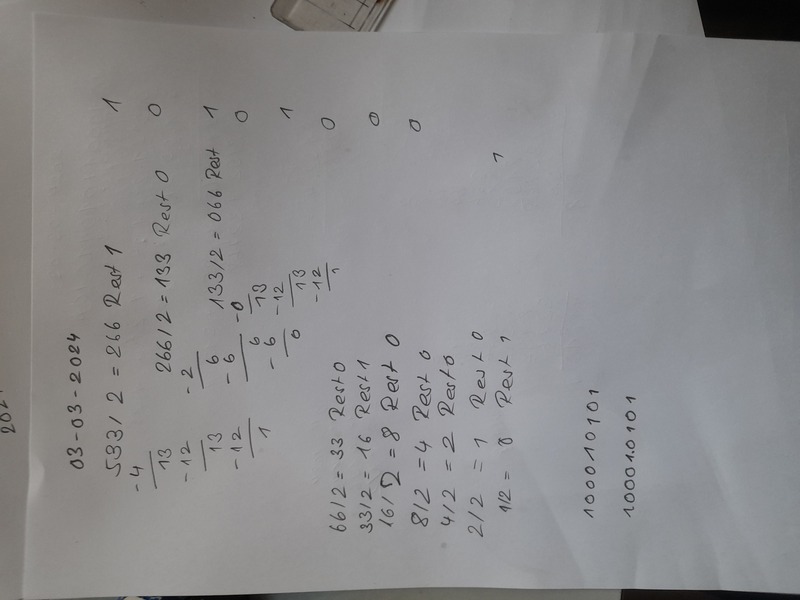 202
03-03-2024
533/2 = 266 Rest 1 1
-4
13 266/2 = 133 Rest 0 0
-12 -2
13 6 133/2 = 066 Rest 1
-12 -6 -0 0
1 6 13
-6 -12 1
0 13
-12
1
66/2 = 33 Rest 0 0
33/2 = 16 Rest 1
16/2 = 8 Rest 0 0
8/2 = 4 Rest 0 0
4/2 = 2 Rest 0
2/2 = 1 Rest 0
1/2 = 0 Rest 1 1
1000010101
1000010101